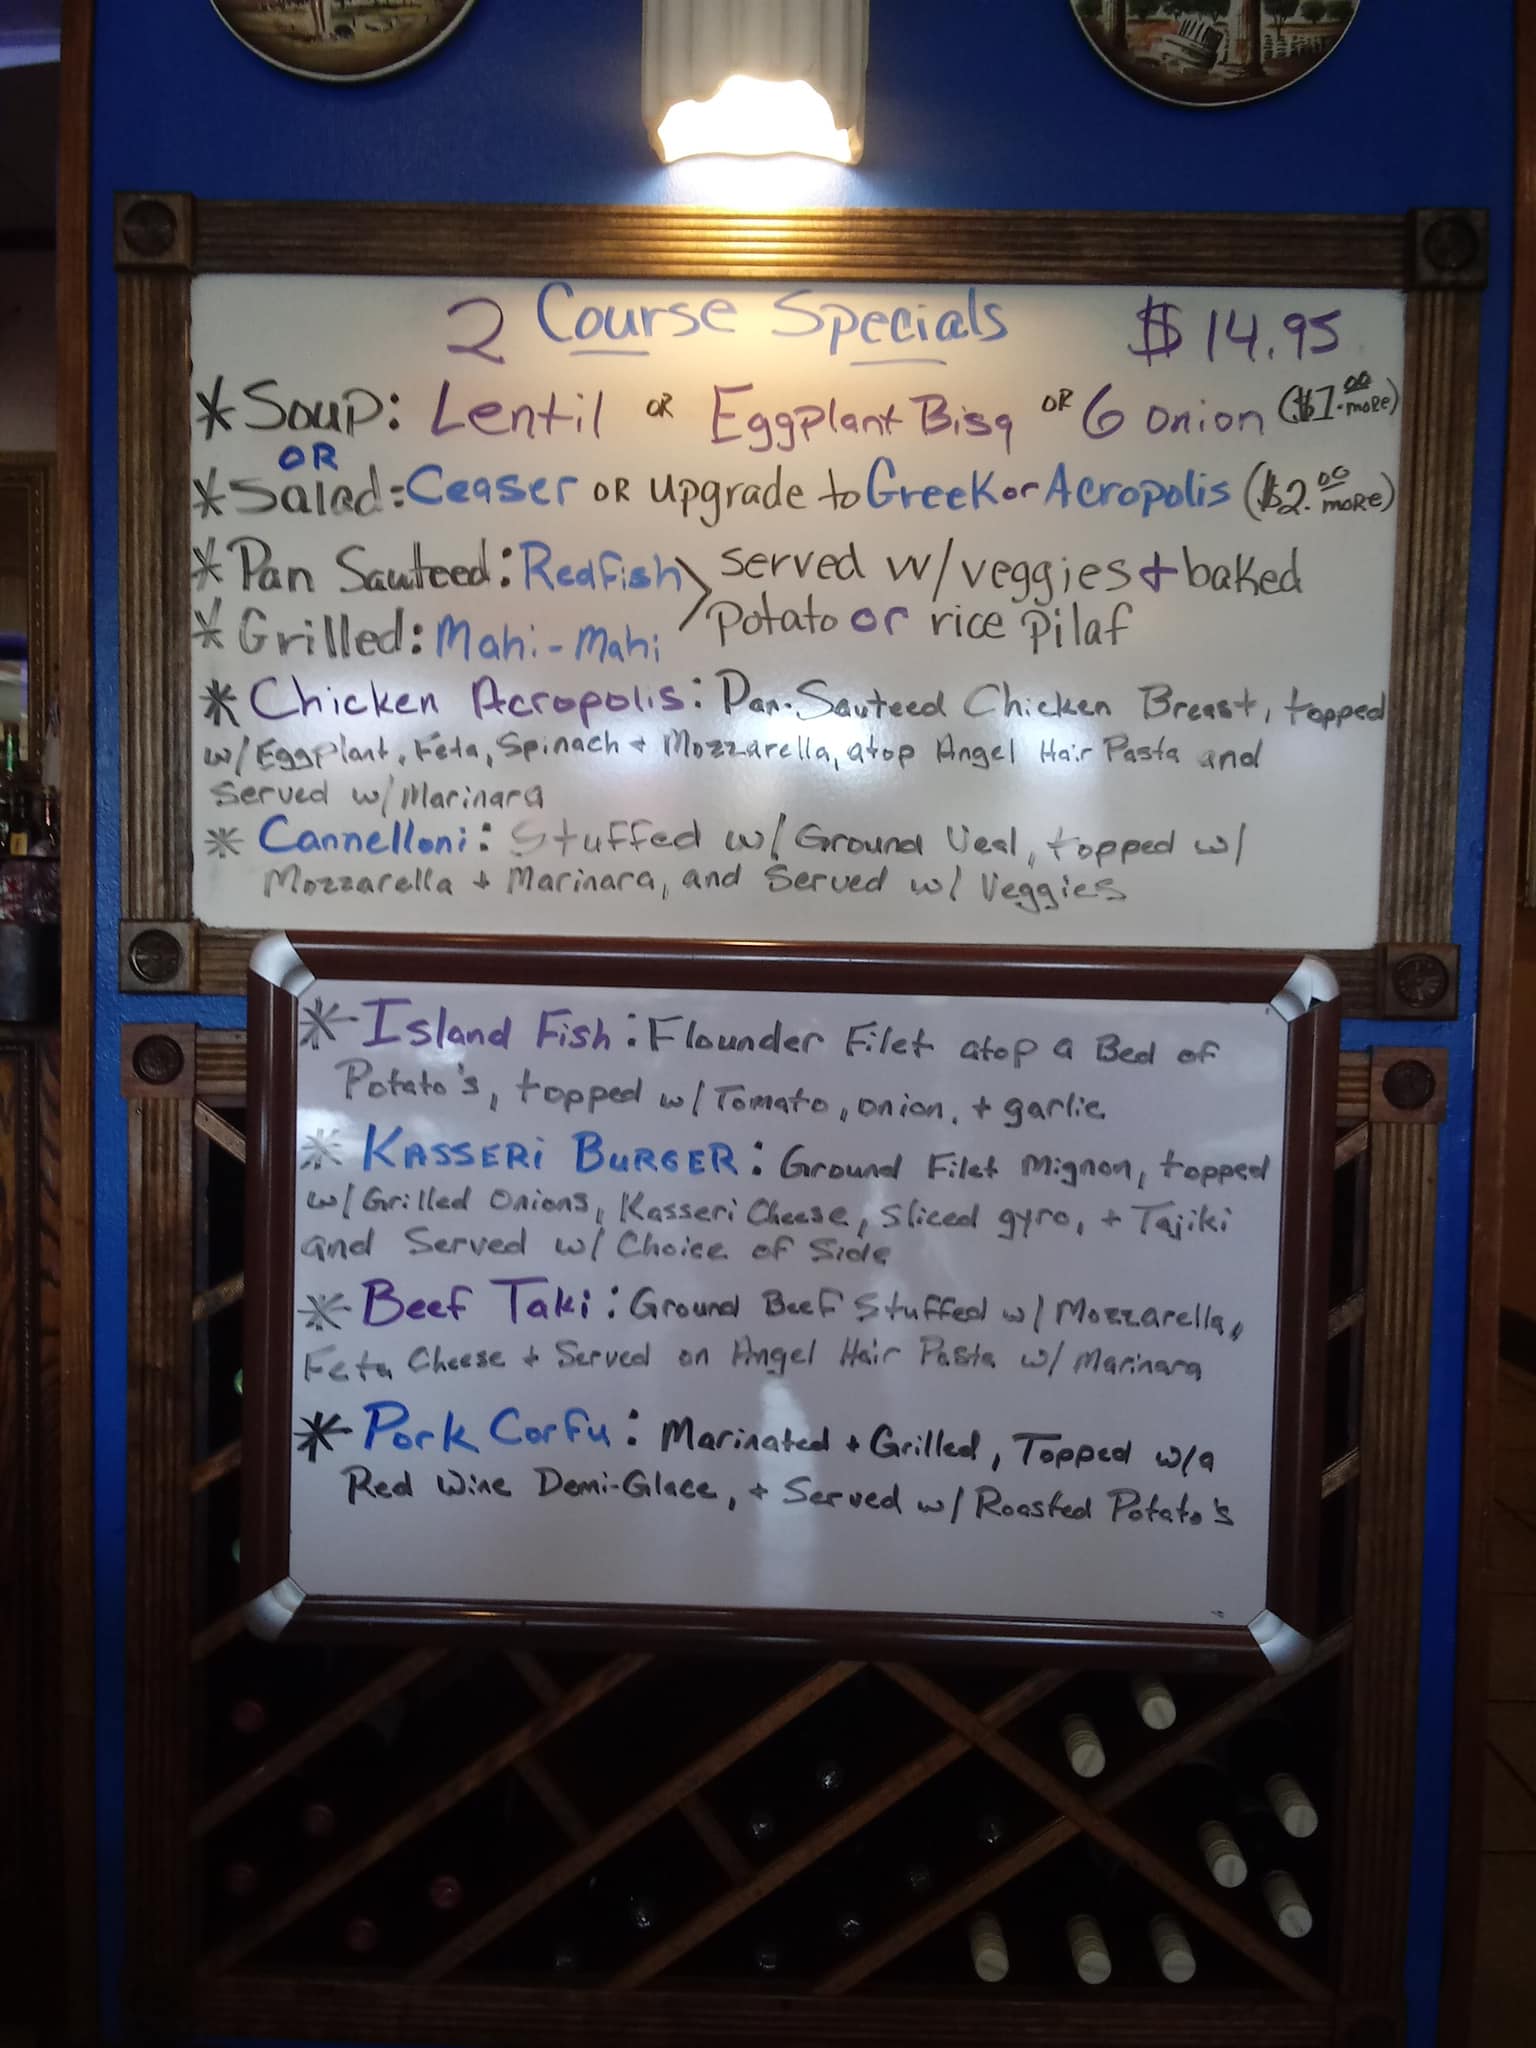 2 Course Specials $14.95
* Soup: Lentil OR Eggplant Bisq OR 6 Onion ($1.00 more)
OR
* Salad: Ceaser OR upgrade to Greek or Acropolis ($2.00 more)
* Pan Sauteed: Redfish > served w/veggies + baked
* Grilled: Mahi-Mahi potato or rice pilaf
* Chicken Acropolis: Pan-Sauteed Chicken Breast, topped
w/Eggplant, Feta, Spinach + Mozzarella, atop Angel Hair Pasta and
Served w/Marinara
* Cannelloni: Stuffed w/ Ground Veal, topped w/
Mozzarella + Marinara, and Served w/ Veggies
* Island Fish: Flounder Filet atop a Bed of
Potato's, topped w/Tomato, onion, + garlic
* KASSERI BURGER: Ground Filet Mignon, topped
w/Grilled Onions, Kasseri Cheese, Sliced gyro, + Tajiki
and Served w/ Choice of Side
* Beef Taki: Ground Beef Stuffed w/ Mozzarella,
Feta Cheese + Served on Angel Hair Pasta w/ Marinara
* Pork Corfu: Marinated + Grilled, Topped w/a
Red Wine Demi-Glace, + Served w/ Roasted Potato's